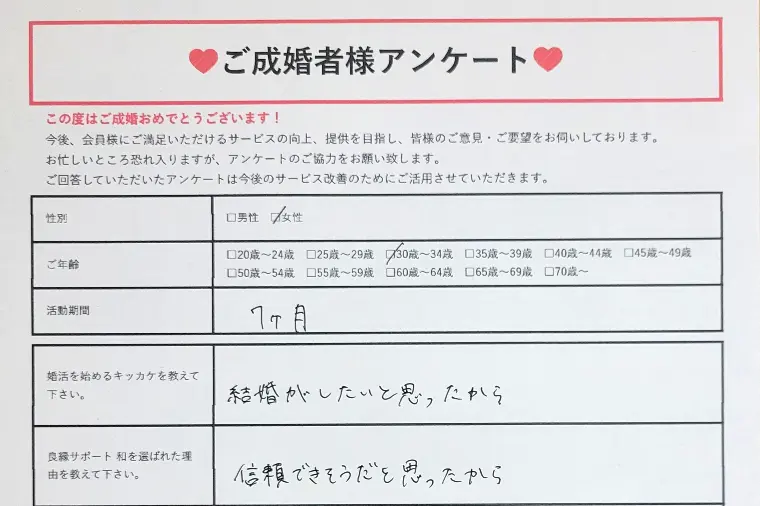 ♥ご成婚者様アンケート♥
この度はご成婚おめでとうございます！
今後、会員様にご満足いただけるサービスの向上、提供を目指し、皆様のご意見・ご要望をお伺いしております。
お忙しいところ恐れ入りますが、アンケートのご協力をお願い致します。
ご回答していただいたアンケートは今後のサービス改善のためにご活用させていただきます。
性別
□男性 ☑女性
ご年齢
□20歳～24歳 □25歳～29歳 ☑30歳～34歳 □35歳～39歳 □40歳～44歳 □45歳～49歳
□50歳～54歳 □55歳～59歳 □60歳～64歳 □65歳～69歳 □70歳～
活動期間
7ヶ月
婚活を始めるキッカケを教えて
下さい。
結婚がしたいと思ったから
良縁サポート 和を選ばれた理
由を教えて下さい。
信頼できそうだと思ったから